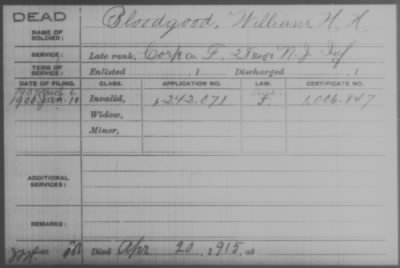 DEAD
NAME OF SOLDIER: Bloodgood, William H. H.
SERVICE: Late rank, Corp Co. F, 28 Reg't N.J. Inf
TERM OF SERVICE: Enlisted , 1 Discharged , 1
DATE OF FILING. CLASS. APPLICATION NO. LAW. CERTIFICATE NO.
Invalid, 1,242.071 1,006.847
Widow,
Minor,
ADDITIONAL SERVICES:
REMARKS:
Died Apr 20, 1915, at